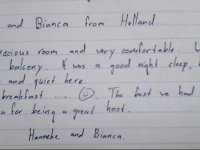 and Bianca from Holland.
spacious room and very comfortable.
balcony. It was a good night sleep,
and quiet here.
breakfast .... ☺ The best we had
for being a great host.
Hanneke and Bianca.